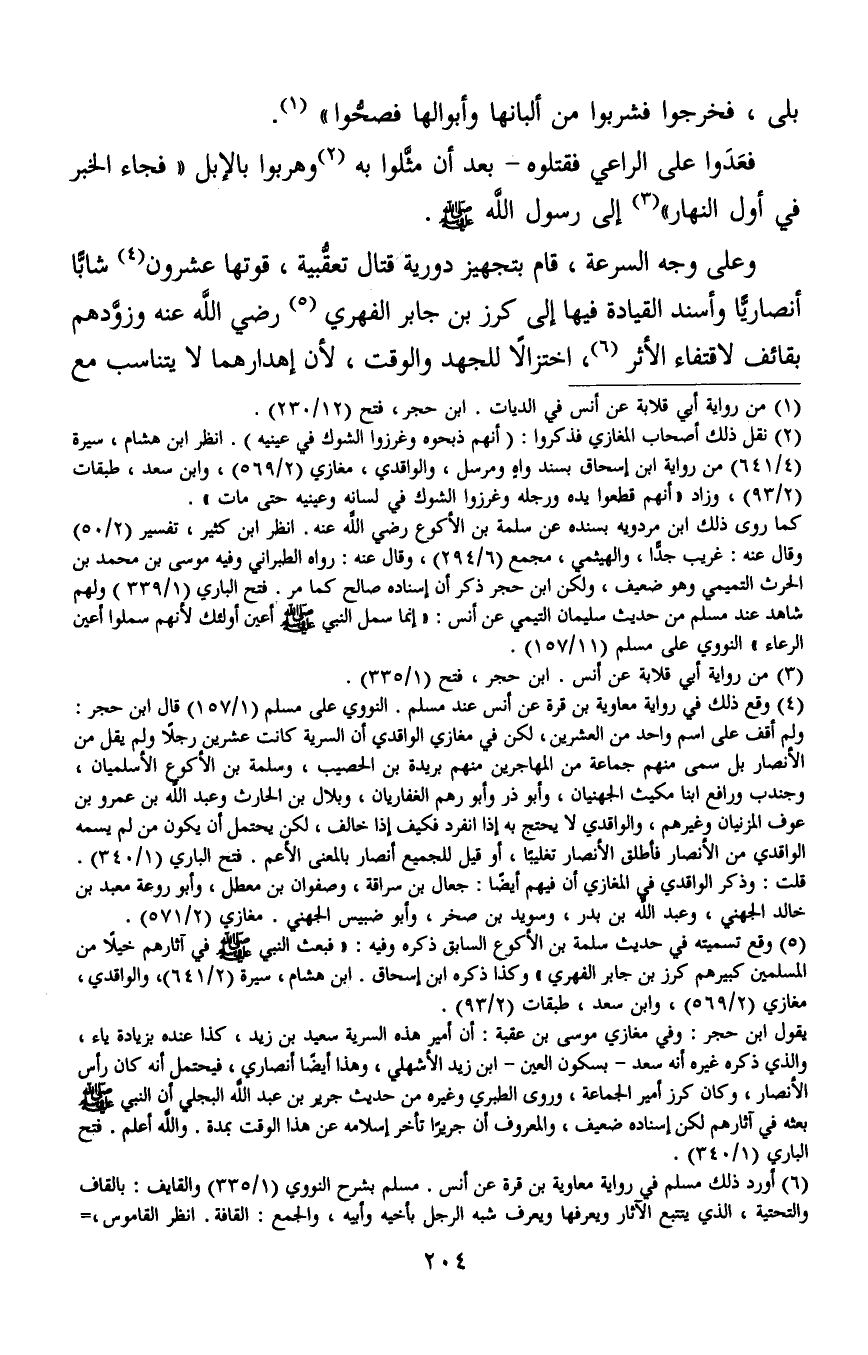 بلى ، فخرجوا فشربوا من ألبانها وأبوالها فصحُّوا » (١).
فعَدَوا على الراعي فقتلوه – بعد أن مثَّلوا به (٢)وهربوا بالإبل « فجاء الخبر
في أول النهار»(٣) إلى رسول اللَّه ﷺ .
وعلى وجه السرعة ، قام بتجهيز دورية قتال تعقُّبية ، قوتها عشرون(٤) شابًّا
أنصاريًّا وأسند القيادة فيها إلى كرز بن جابر الفهري (٥) رضي اللَّه عنه وزوَّدهم
بقائف لاقتفاء الأثر (٦)، اختزالًا للجهد والوقت ، لأن إهدارهما لا يتناسب مع
(١) من رواية أبي قلابة عن أنس في الديات . ابن حجر ، فتح (٢٣٠/١٢) .
(٢) نقل ذلك أصحاب المغازي فذكروا : ( أنهم ذبحوه وغرزوا الشوك في عينيه ) . انظر ابن هشام ، سيرة
(٦٤١/٤) من رواية ابن إسحاق بسند واهٍ ومرسل ، والواقدي ، مغازي (٥٦٩/٢) ، وابن سعد ، طبقات
(٩٣/٢) ، وزاد «أنهم قطعوا يده ورجله وغرزوا الشوك في لسانه وعينيه حتى مات » .
كما روى ذلك ابن مردويه بسنده عن سلمة بن الأكوع رضي اللَّه عنه. انظر ابن كثير ، تفسير (٥٠/٢)
وقال عنه : غريب جدًّا ، والهيثمي ، مجمع (٢٩٤/٦) ، وقال عنه : رواه الطبراني وفيه موسى بن محمد بن
الحرث التميمي وهو ضعيف ، ولكن ابن حجر ذكر أن إسناده صالح كما مر . فتح الباري (٣٣٩/١ ) ولهم
شاهد عند مسلم من حديث سليمان التيمي عن أنس : « إنما سمل النبي ﷺ أعين أولئك لأنهم سملوا أعين
الرعاء » النووي على مسلم (١٥٧/١١) .
(٣) من رواية أبي قلابة عن أنس . ابن حجر ، فتح (٣٣٥/١) .
(٤) وقع ذلك في رواية معاوية بن قرة عن أنس عند مسلم . النووي على مسلم (١٥٧/١) قال ابن حجر :
ولم أقف على اسم واحد من العشرين، لكن في مغازي الواقدي أن السرية كانت عشرين رجلًا ولم يقل من
الأنصار بل سمى منهم جماعة من المهاجرين منهم بريدة بن الحصيب ، وسلمة بن الأكوع الأسلميان ،
وجندب ورافع ابنا مكيث الجهنيان ، وأبو ذر وأبو رهم الغفاريان ، وبلال بن الحارث وعبد اللَّه بن عمرو بن
عوف المزنيان وغيرهم ، والواقدي لا يحتج به إذا انفرد فكيف إذا خالف ، لكن يحتمل أن يكون من لم يسمه
الواقدي من الأنصار فأطلق الأنصار تغليبًا ، أو قيل للجميع أنصار بالمعنى الأعم . فتح الباري (٣٤٠/١) .
قلت : وذكر الواقدي في المغازي أن فيهم أيضًا : جعال بن سراقة ، وصفوان بن معطل ، وأبو روعة معبد بن
خالد الجهني ، وعبد اللَّه بن بدر ، وسويد بن صخر ، وأبو ضبيس الجهني . مغازي (٥٧١/٢) .
(٥) وقع تسميته في حديث سلمة بن الأكوع السابق ذكره وفيه : « فبعث النبي ﷺ في آثارهم خيلًا من
المسلمين كبيرهم كرز بن جابر الفهري » وكذا ذكره ابن إسحاق . ابن هشام ، سيرة (٦٤١/٢)، والواقدي ،
مغازي (٥٦٩/٢) ، وابن سعد ، طبقات (٩٣/٢) .
يقول ابن حجر : وفي مغازي موسى بن عقبة : أن أمير هذه السرية سعيد بن زيد ، كذا عنده بزيادة ياء ،
والذي ذكره غيره أنه سعد – بسكون العين – ابن زيد الأشهلي ، وهذا أيضًا أنصاري ، فيحتمل أنه كان رأس
الأنصار ، وكان كرز أمير الجماعة ، وروى الطبري وغيره من حديث جرير بن عبد اللَّه البجلي أن النبي ﷺ
بعثه في آثارهم لكن إسناده ضعيف ، والمعروف أن جريرًا تأخر إسلامه عن هذا الوقت بمدة . واللَّه أعلم . فتح
الباري (٣٤٠/١) .
(٦) أورد ذلك مسلم في رواية معاوية بن قرة عن أنس . مسلم بشرح النووي (٣٣٥/١) والقايف : بالقاف
والتحتية ، الذي يتتبع الآثار ويعرفها ويعرف شبه الرجل بأخيه وأبيه ، والجمع : القافة . انظر القاموس ،=
٢٠٤